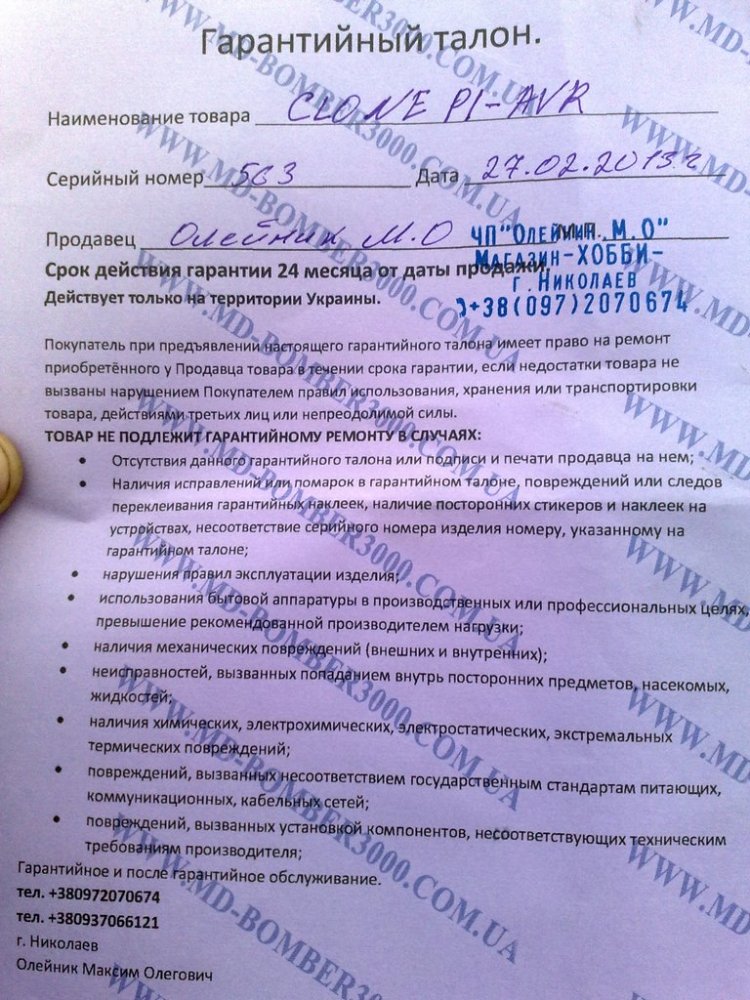 Гарантийный талон.
Наименование товара CLONE PI-AVR
Серийный номер 563 Дата 27.02.2013г
Продавец Олейник М.О М.П.
ЧП "Олейник М.О"
Магазин-ХОББИ-
г.Николаев
)+38(097)2070674
Срок действия гарантии 24 месяца от даты продажи.
Действует только на территории Украины.
Покупатель при предъявлении настоящего гарантийного талона имеет право на ремонт
приобретённого у Продавца товара в течении срока гарантии, если недостатки товара не
вызваны нарушением Покупателем правил использования, хранения или транспортировки
товара, действиями третьих лиц или непреодолимой силы.
ТОВАР НЕ ПОДЛЕЖИТ ГАРАНТИЙНОМУ РЕМОНТУ В СЛУЧАЯХ:
• Отсутствия данного гарантийного талона или подписи и печати продавца на нем;
• Наличия исправлений или помарок в гарантийном талоне, повреждений или следов
переклеивания гарантийных наклеек, наличие посторонних стикеров и наклеек на
устройствах, несоответствие серийного номера изделия номеру, указанному на
гарантийном талоне;
• нарушения правил эксплуатации изделия;
• использования бытовой аппаратуры в производственных или профессиональных целях,
превышение рекомендованной производителем нагрузки;
• наличия механических повреждений (внешних и внутренних);
• неисправностей, вызванных попаданием внутрь посторонних предметов, насекомых,
жидкостей;
• наличия химических, электрохимических, электростатических, экстремальных
термических повреждений;
• повреждений, вызванных несоответствием государственным стандартам питающих,
коммуникационных, кабельных сетей;
• повреждений, вызванных установкой компонентов, несоответствующих техническим
требованиям производителя;
Гарантийное и после гарантийное обслуживание.
тел. +380972070674
тел. +380937066121
г. Николаев
Олейник Максим Олегович
WWW.MD-BOMBER3000.COM.UA